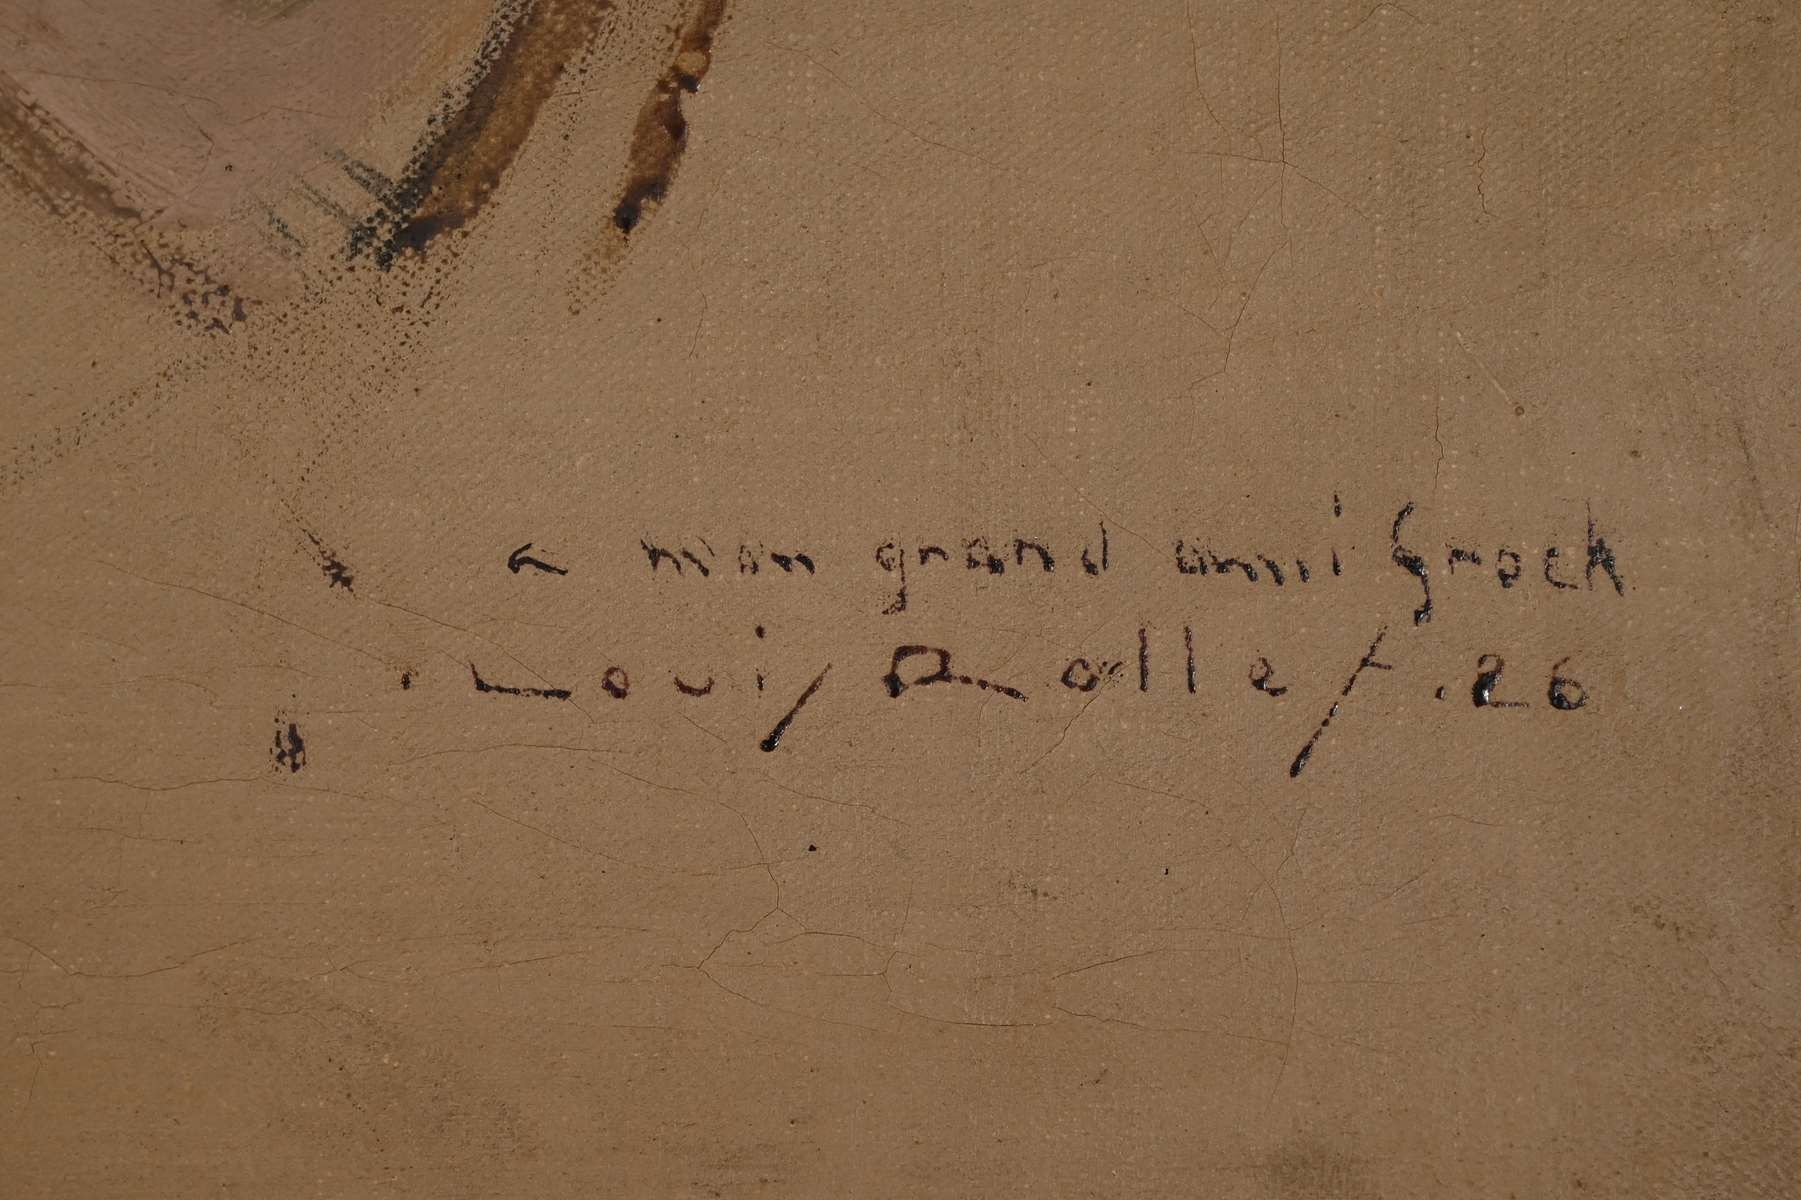 a mon grand ami Grock
Louis Rollet. 26